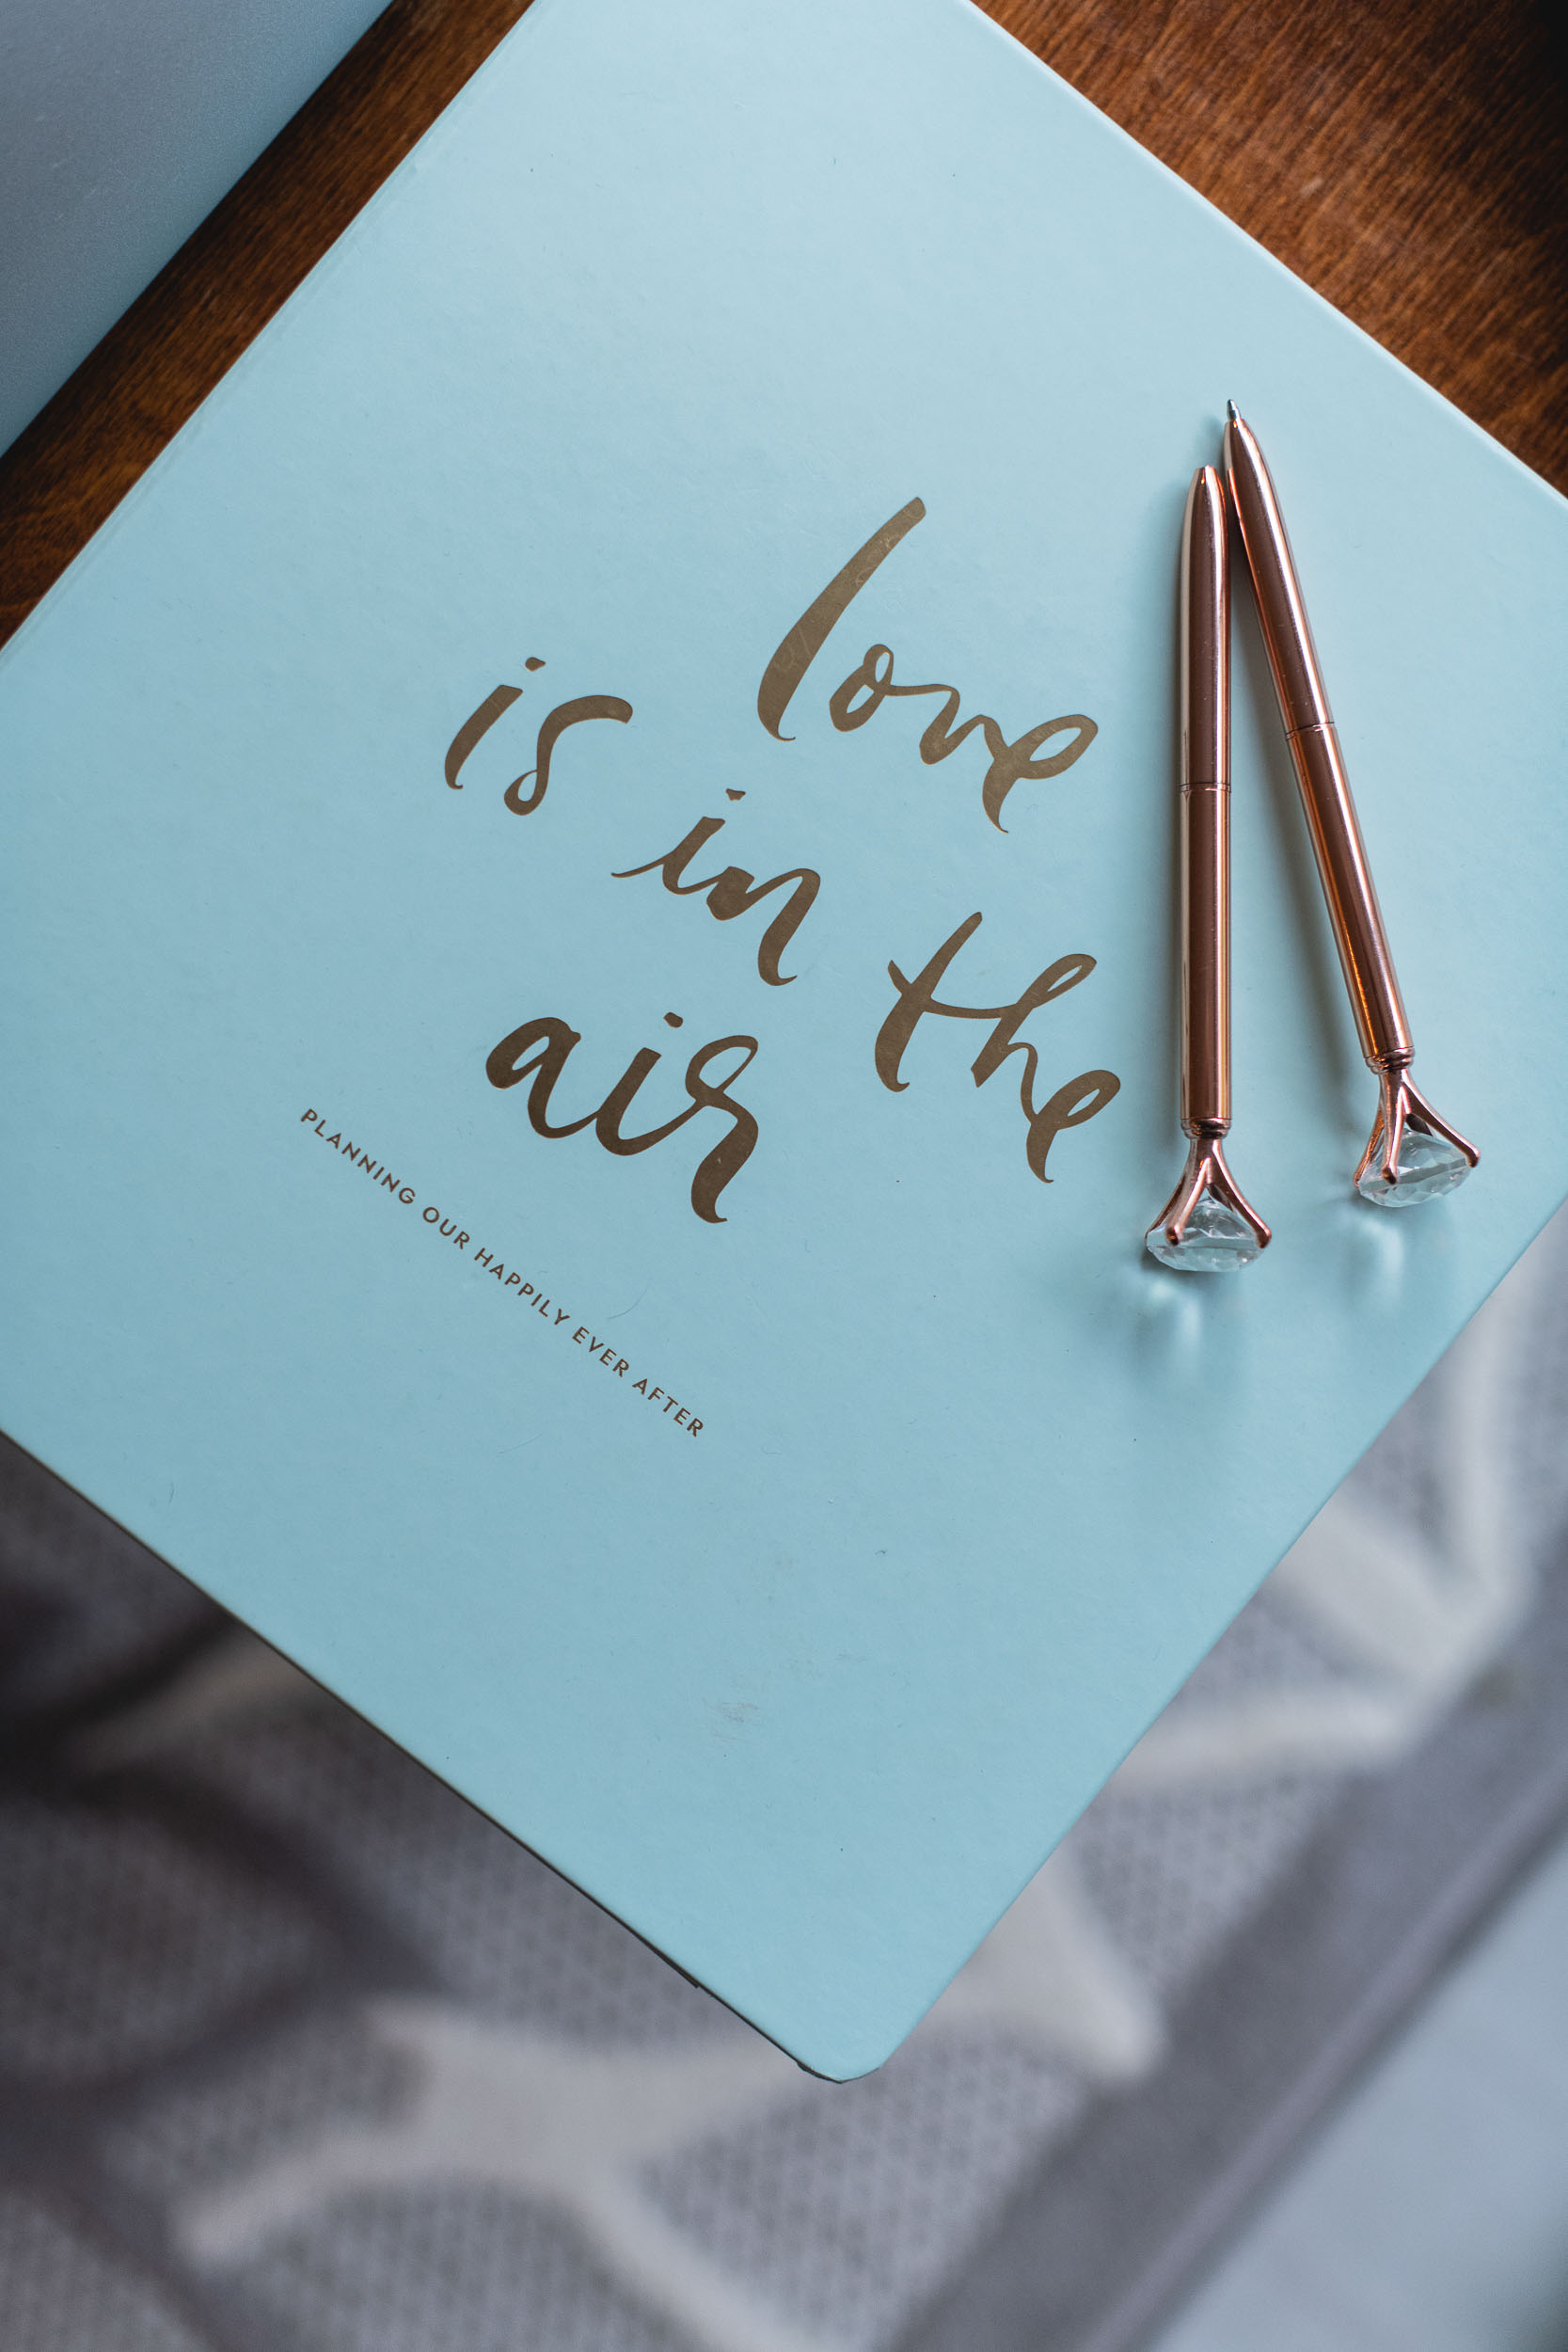 love
is in the
air
PLANNING OUR HAPPILY EVER AFTER